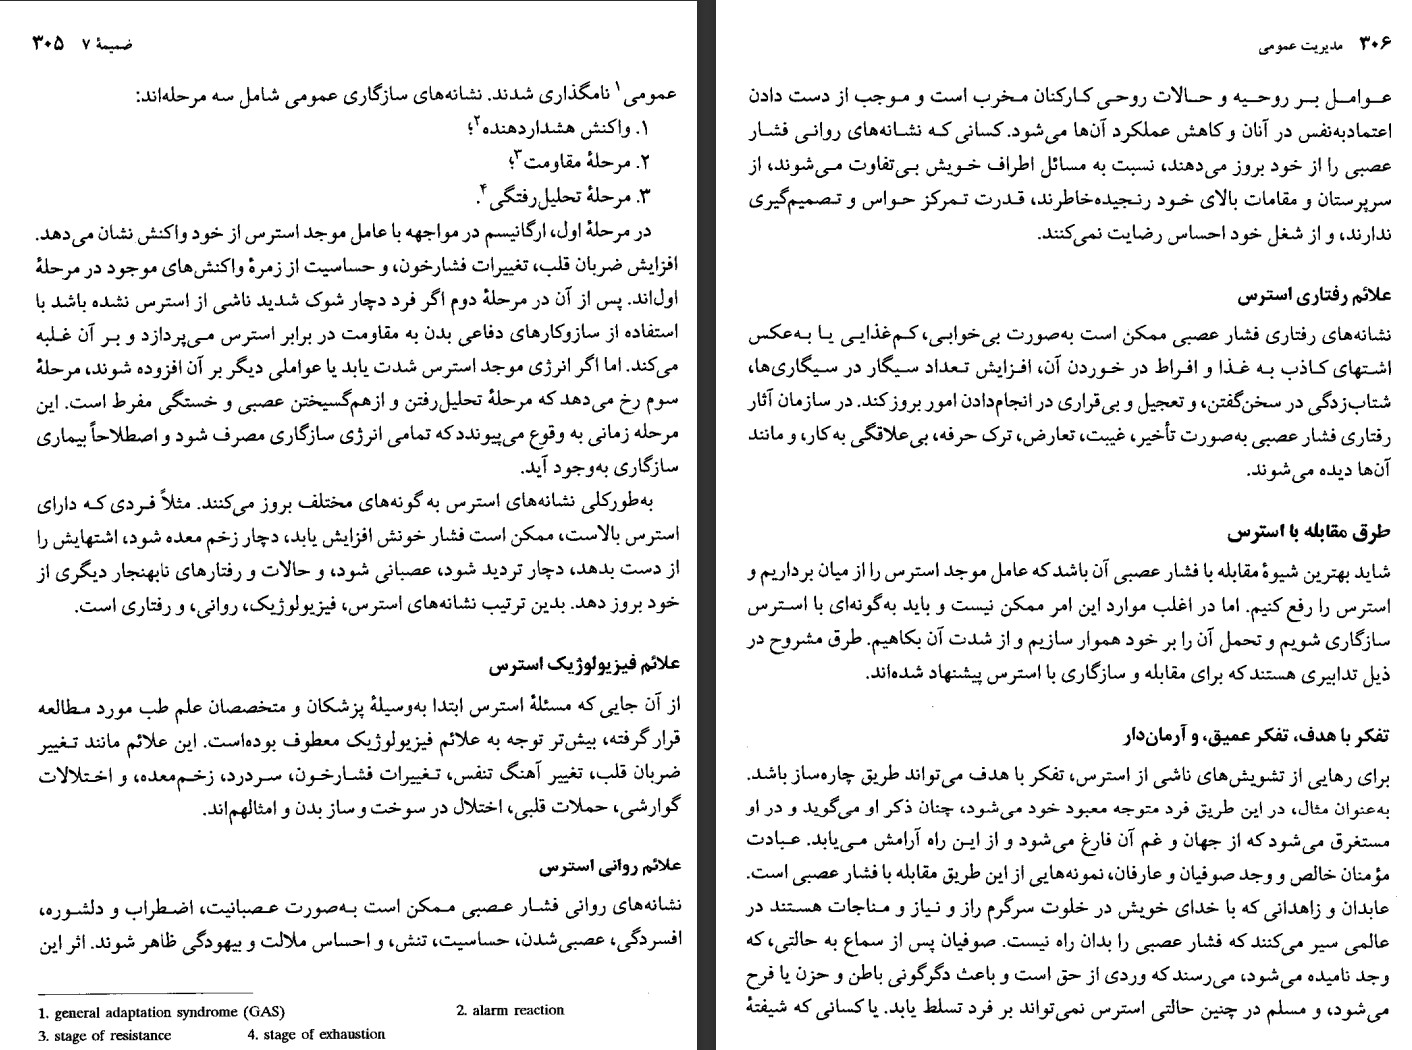 ضمیمهٔ ۷ ۳۰۵
عمومی۱ نامگذاری شدند. نشانه‌های سازگاری عمومی شامل سه مرحله‌اند:
۱. واکنش هشداردهنده۲؛
۲. مرحلهٔ مقاومت۳؛
۳. مرحلهٔ تحلیل‌رفتگی۴.
در مرحلهٔ اول، ارگانیسم در مواجهه با عامل موجد استرس از خود واکنش نشان می‌دهد.
افزایش ضربان قلب، تغییرات فشارخون، و حساسیت از زمرهٔ واکنش‌های موجود در مرحلهٔ
اول‌اند. پس از آن در مرحلهٔ دوم اگر فرد دچار شوک شدید ناشی از استرس نشده باشد با
استفاده از سازوکارهای دفاعی بدن به مقاومت در برابر استرس می‌پردازد و بر آن غلبه
می‌کند. اما اگر انرژی موجد استرس شدت یابد یا عواملی دیگر بر آن افزوده شوند، مرحلهٔ
سوم رخ می‌دهد که مرحلهٔ تحلیل‌رفتن و ازهم‌گسیختن عصبی و خستگی مفرط است. این
مرحله زمانی به وقوع می‌پیوندد که تمامی انرژی سازگاری مصرف شود و اصطلاحاً بیماری
سازگاری به‌وجود آید.
به‌طورکلی نشانه‌های استرس به گونه‌های مختلف بروز می‌کنند. مثلاً فردی که دارای
استرس بالاست، ممکن است فشار خونش افزایش یابد، دچار زخم معده شود، اشتهایش را
از دست بدهد، دچار تردید شود، عصبانی شود، و حالات و رفتارهای نابهنجار دیگری از
خود بروز دهد. بدین ترتیب نشانه‌های استرس، فیزیولوژیک، روانی، و رفتاری است.
علائم فیزیولوژیک استرس
از آن جایی که مسئلهٔ استرس ابتدا به‌وسیلهٔ پزشکان و متخصصان علم طب مورد مطالعه
قرار گرفته، بیش‌تر توجه به علائم فیزیولوژیک معطوف بوده‌است. این علائم مانند تغییر
ضربان قلب، تغییر آهنگ تنفس، تغییرات فشارخون، سردرد، زخم‌معده، و اختلالات
گوارشی، حملات قلبی، اختلال در سوخت و ساز بدن و امثالهم‌اند.
علائم روانی استرس
نشانه‌های روانی فشار عصبی ممکن است به‌صورت عصبانیت، اضطراب و دلشوره،
افسردگی، عصبی‌شدن، حساسیت، تنش، و احساس ملالت و بیهودگی ظاهر شوند. اثر این
1. general adaptation syndrome (GAS) 2. alarm reaction
3. stage of resistance 4. stage of exhaustion
۳۰۶ مدیریت عمومی
عوامل بر روحیه و حالات روحی کارکنان مخرب است و موجب از دست دادن
اعتمادبه‌نفس در آنان و کاهش عملکرد آن‌ها می‌شود. کسانی که نشانه‌های روانی فشار
عصبی را از خود بروز می‌دهند، نسبت به مسائل اطراف خویش بی‌تفاوت می‌شوند، از
سرپرستان و مقامات بالای خود رنجیده‌خاطرند، قدرت تمرکز حواس و تصمیم‌گیری
ندارند، و از شغل خود احساس رضایت نمی‌کنند.
علائم رفتاری استرس
نشانه‌های رفتاری فشار عصبی ممکن است به‌صورت بی‌خوابی، کم‌غذایی یا به‌عکس
اشتهای کاذب به غذا و افراط در خوردن آن، افزایش تعداد سیگار در سیگاری‌ها،
شتاب‌زدگی در سخن‌گفتن، و تعجیل و بی‌قراری در انجام‌دادن امور بروز کند. در سازمان آثار
رفتاری فشار عصبی به‌صورت تأخیر، غیبت، تعارض، ترک حرفه، بی‌علاقگی به‌کار، و مانند
آن‌ها دیده می‌شوند.
طرق مقابله با استرس
شاید بهترین شیوهٔ مقابله با فشار عصبی آن باشد که عامل موجد استرس را از میان برداریم و
استرس را رفع کنیم. اما در اغلب موارد این امر ممکن نیست و باید به‌گونه‌ای با استرس
سازگاری شویم و تحمل آن را بر خود هموار سازیم و از شدت آن بکاهیم. طرق مشروح در
ذیل تدابیری هستند که برای مقابله و سازگاری با استرس پیشنهاد شده‌اند.
تفکر با هدف، تفکر عمیق، و آرمان‌دار
برای رهایی از تشویش‌های ناشی از استرس، تفکر با هدف می‌تواند طریق چاره‌ساز باشد.
به‌عنوان مثال، در این طریق فرد متوجه معبود خود می‌شود، چنان ذکر او می‌گوید و در او
مستغرق می‌شود که از جهان و غم آن فارغ می‌شود و از این راه آرامش می‌یابد. عبادت
مؤمنان خالص و وجد صوفیان و عارفان، نمونه‌هایی از این طریق مقابله با فشار عصبی است.
عابدان و زاهدانی که با خدای خویش در خلوت سرگرم راز و نیاز و مناجات هستند در
عالمی سیر می‌کنند که فشار عصبی را بدان راه نیست. صوفیان پس از سماع به حالتی، که
وجد نامیده می‌شود، می‌رسند که وردی از حق است و باعث دگرگونی باطن و حزن یا فرح
می‌شود، و مسلم در چنین حالتی استرس نمی‌تواند بر فرد تسلط یابد. یا کسانی که شیفتهٔ